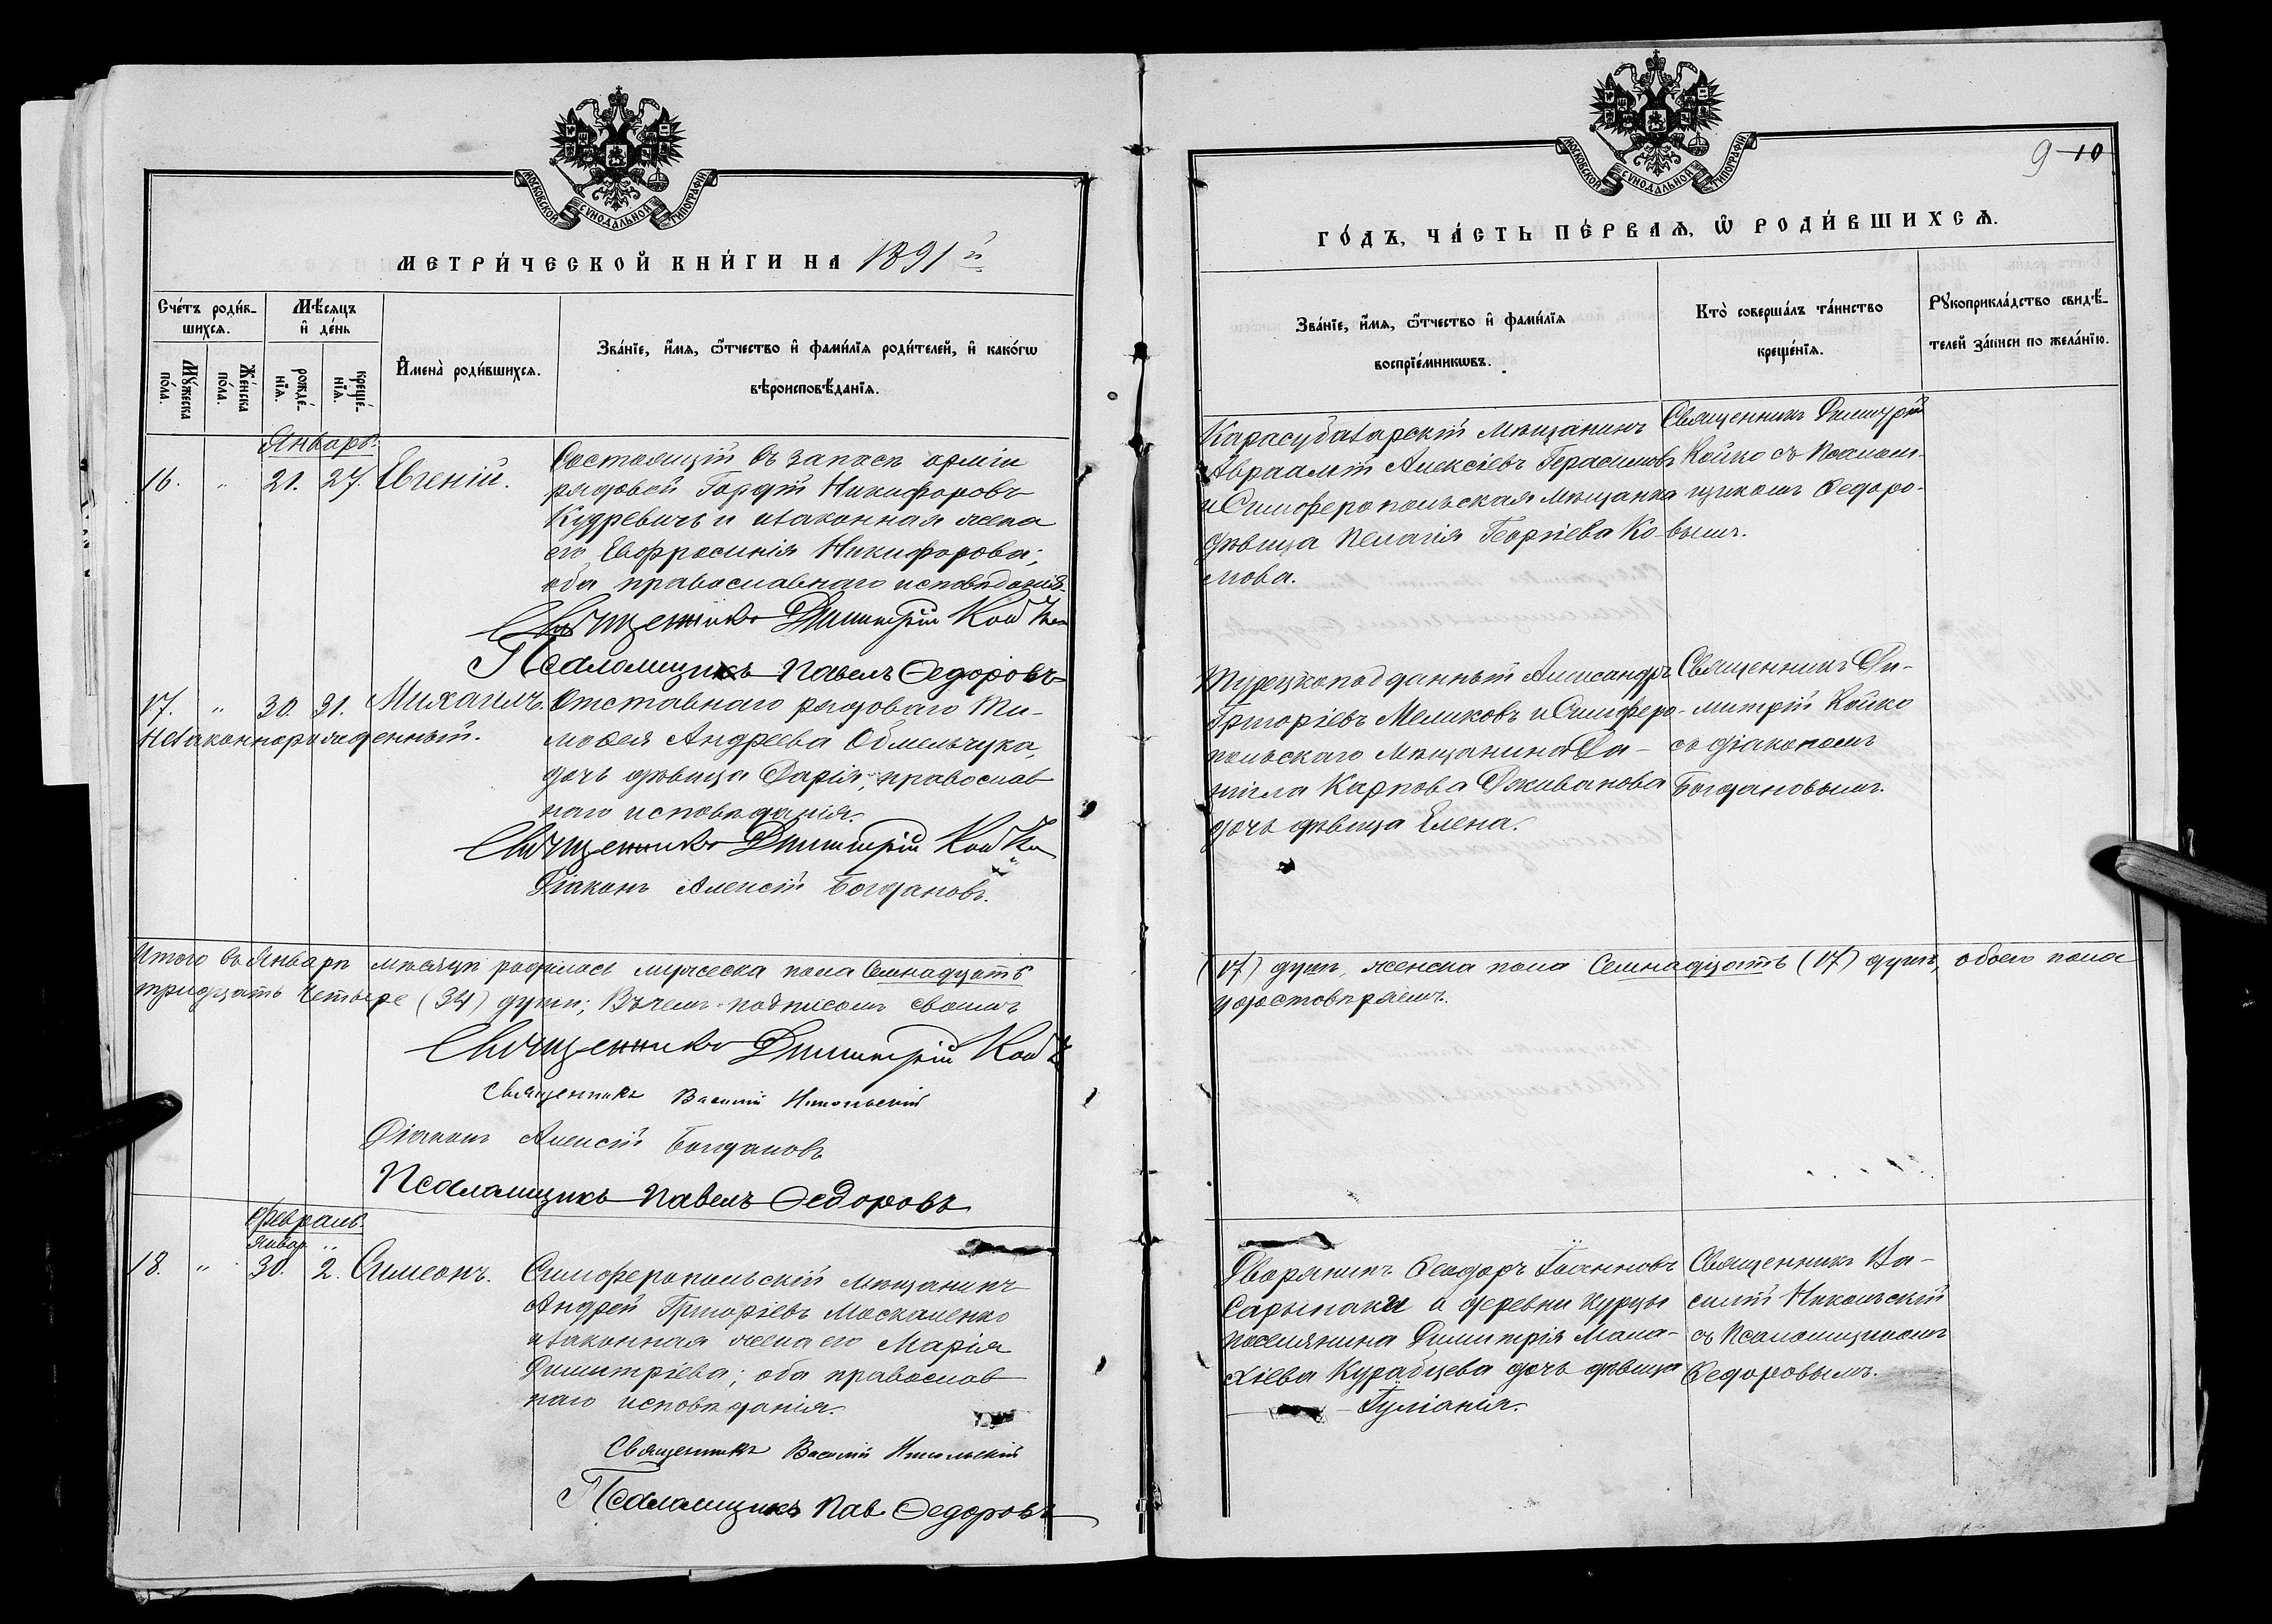 МОСКОВСКОЙ СѴНОДАЛЬНОЙ ТИПОГРАФІИ
МЕТРИ́ЧЕСКОЙ КНИ́ГИ НА 1891й
Сче́тъ роди́в-
шихся.
Мѣ́сяцъ
и҆ де́нь
Мꙋ́жеска
по́ла.
Же́нска
по́ла.
рожде́-
нїя.
креще́-
нїя.
И҆мена̀ роди́вшихся.
Зва́нїе, и҆́мя, ѻ҆́тчество и҆ фами́лїя роди́телей, и҆ како́гѡ
вѣроисповѣ́данїя.
Январь.
16. " 21. 27. Евгеній.
Состоящій въ запасѣ арміи
рядовой Гордій Никифоровъ
Кудревичъ и законная жена
его Евфросинія Никифорова;
оба православнаго исповѣданія.
Священникъ Димитрій Койко
Псаломщикъ Павелъ Ѳедоровъ
17. " 30. 31. Михаилъ.
Незаконнорожденный.
Отставнаго рядоваго Ти-
моѳея Андреева Обмельчука,
дочь дѣвица Дарія, православ
наго исповѣданія.
Священникъ Димитрій Койко
Діаконъ Алексій Богдановъ.
Итого въ Январѣ мѣсяцѣ родилось мужеска пола семнадцать
тридцать четыре (34) души; Въ чемъ подписомъ своимъ
Священникъ Димитрій Койко
Священникъ Василій Никольскій
Діаконъ Алексій Богдановъ
Псаломщикъ Павелъ Ѳедоровъ
Февраль.
Январ. "
18. " 30. 2. Симеонъ.
Симферопольскій мѣщанинъ
Андрей Григоріевъ Москаленко
и законная жена его Марія
Димитріева; оба православ
наго исповѣданія.
Священникъ Василій Никольскій
Псаломщикъ Пав Ѳедоровъ
9 10
МОСКОВСКОЙ СѴНОДАЛЬНОЙ ТИПОГРАФІИ
ГО́ДЪ, ЧА́СТЬ ПЕ́РВАѦ, Ѡ҆ РОДИ́ВШИХСѦ.
Зва́нїе, и҆́мя, ѻ҆́тчество и҆ фами́лїя
воспрїе́мникѡвъ.
Кто̀ соверша́лъ та́инство
креще́нїя.
Рꙋкоприкла́дство свидѣ́-
телей за́писи по жела́нїю.
Карасубазарскій мѣщанинъ
Авраамій Алексіевъ Герасимовъ
и Симферопольская мѣщанка
дѣвица Пелагія Георгіева Ко-
мова.
Священникъ Димитрій
Койко съ Псалом-
щикомъ Ѳедоро-
вымъ.
Турецкоподданный Александръ
Григоріевъ Меликовъ и Симферо-
польскаго мѣщанина Да-
ніила Карпова Дживанова
дочь дѣвица Елена.
Священникъ Ди-
митрій Койко
съ діакономъ
Богдановымъ.
(17) душъ, женска пола семнадцать (17) душъ, обоего пола
удостовѣряемъ.
Дворянинъ Ѳеодоръ Іоанновъ
и деревни Курцы
поселянина Димитрія Мала-
хіева Курабцева дочь дѣвица
Іуліанія.
Священникъ Ва-
силій Никольскій
съ Псаломщикомъ
Ѳедоровымъ.